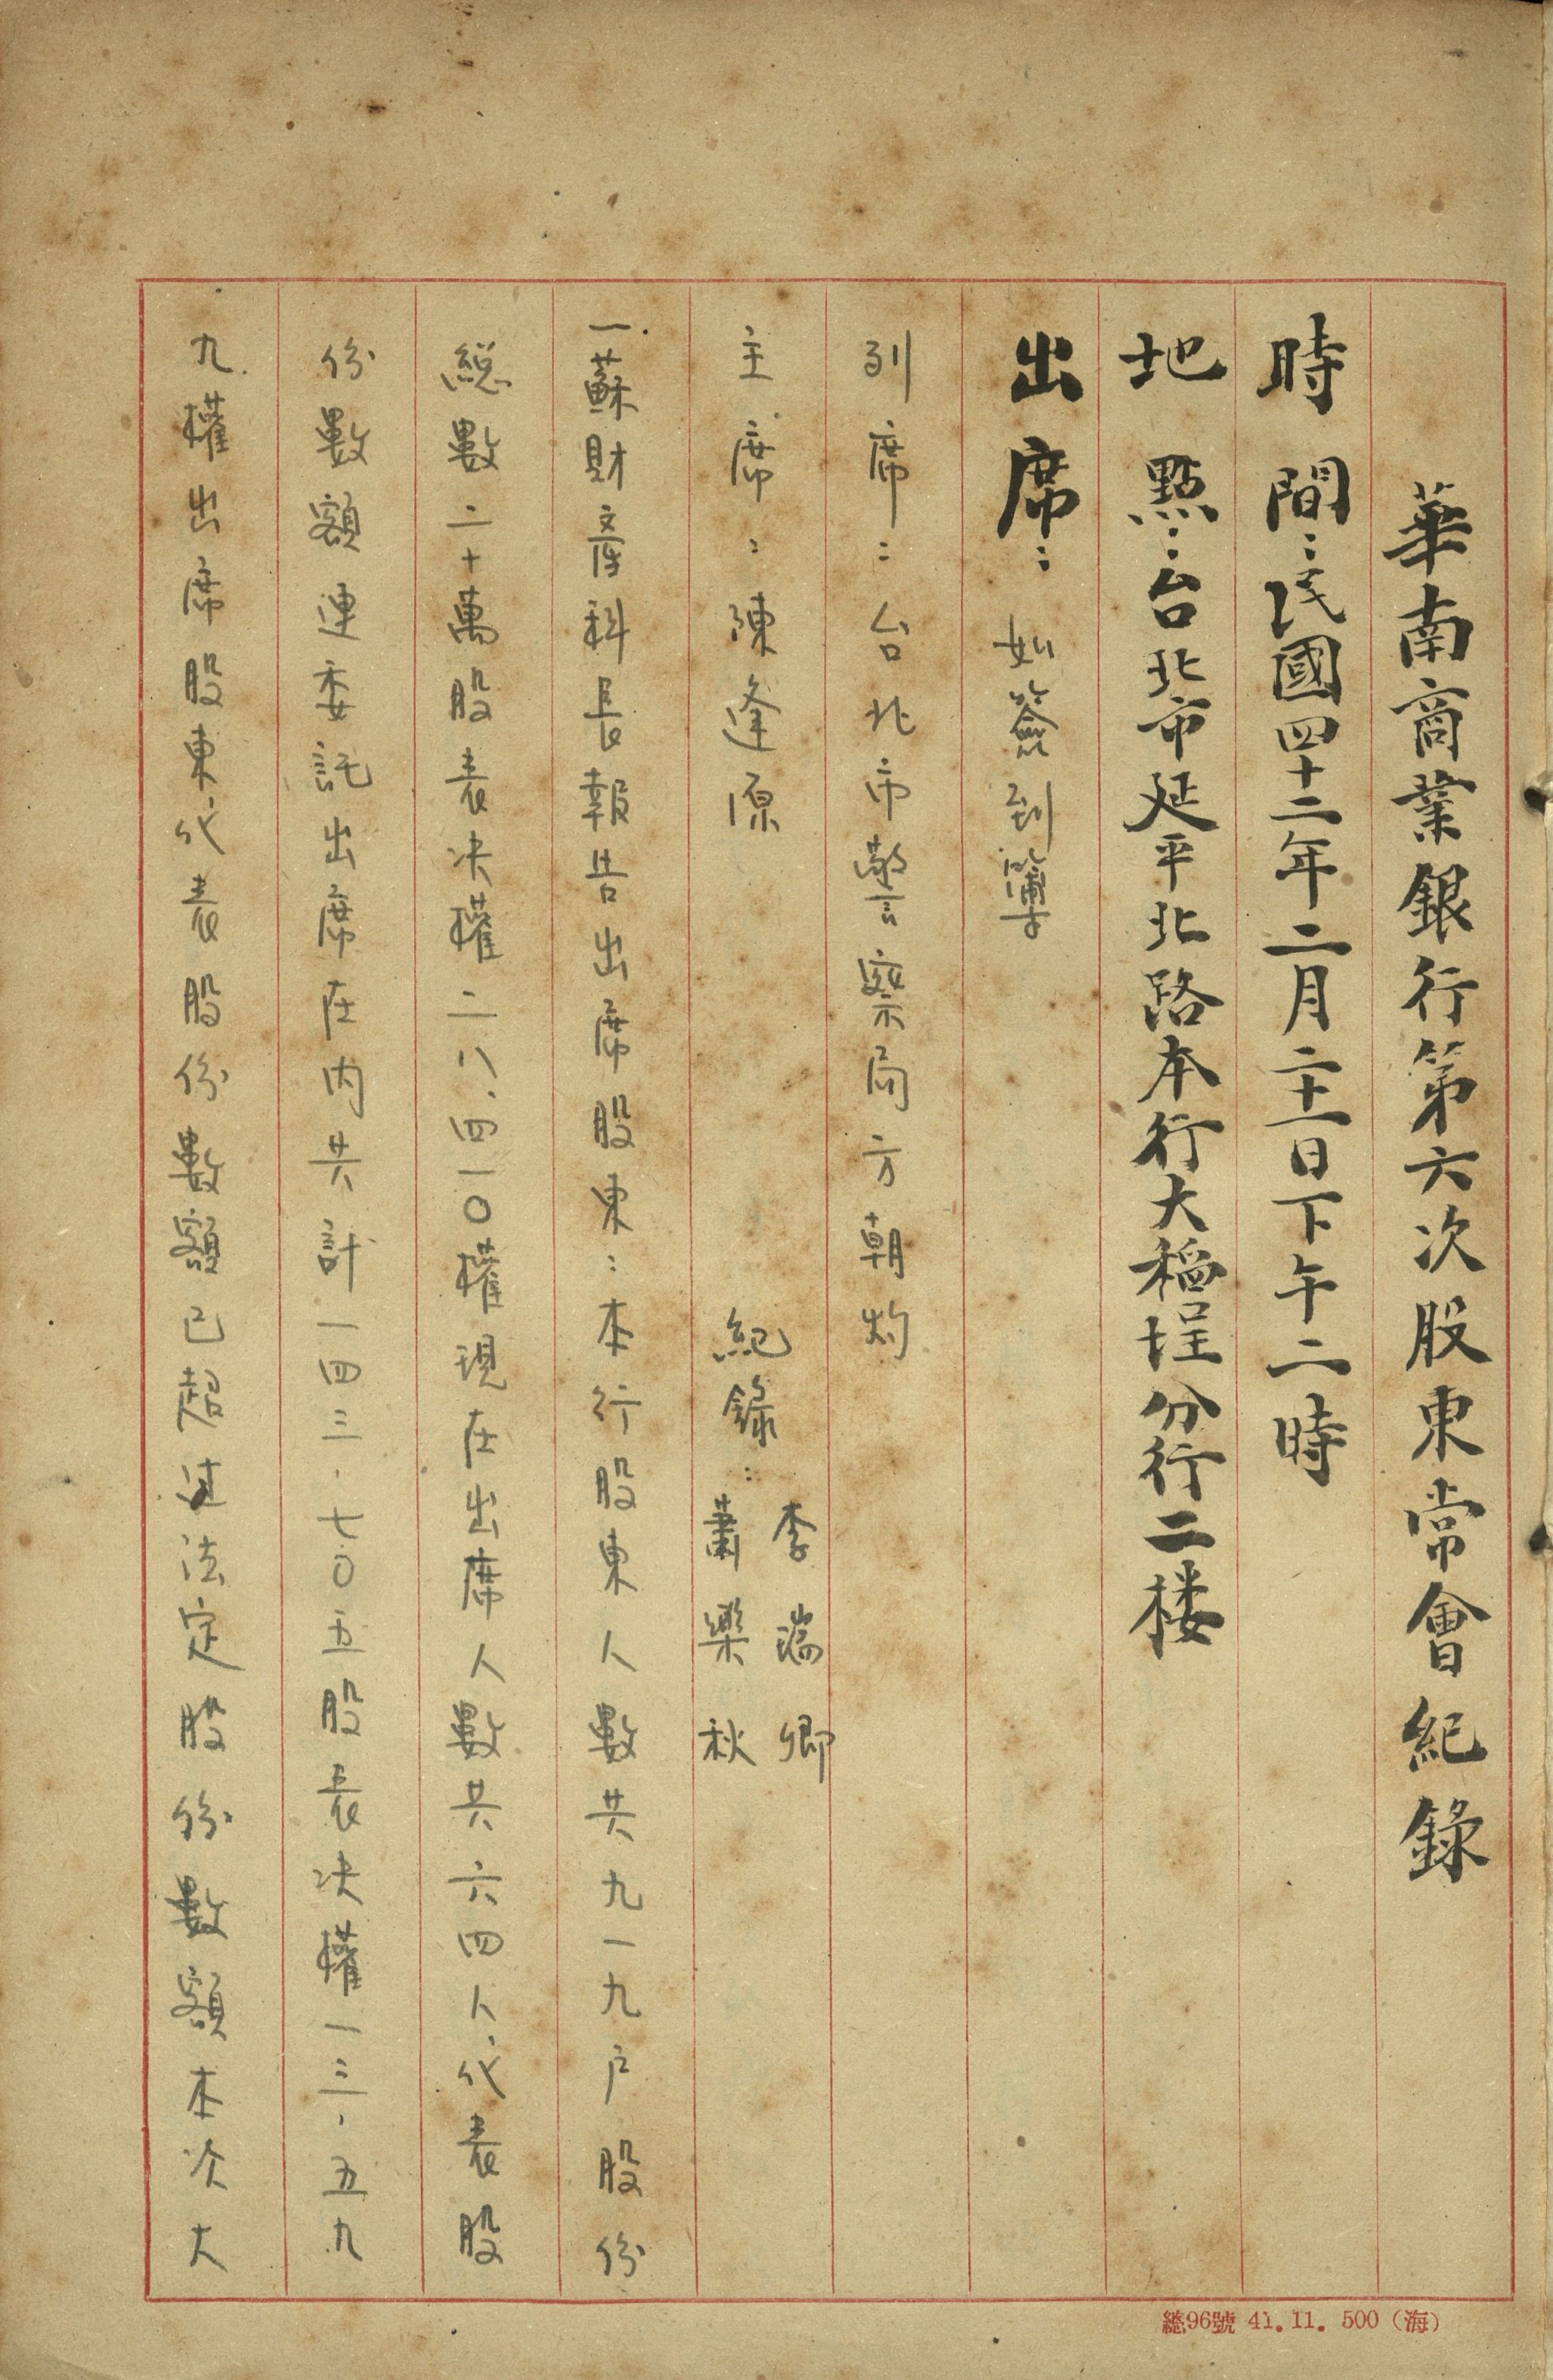 華南商業銀行第六次股東常會紀錄
時間：民國四十二年二月二十一日下午二時
地點：台北市延平北路本行大稻埕分行二楼
出席：如簽到簿
列席：台北市警察局方朝灼
主席：陳逢源 紀錄：李瑞卿 蕭樂秋
一蘇財産科長報告出席股東：本行股東人數共九一九户股份
総數二十萬股表決權二八、四一〇權現在出席人數共六四人、代表股
份數額連委託出席在内共計一四三、七〇五股表决權一三、五九
九權出席股東代表股份數額已超过法定股份數額本次大
總96號 41.11. 500（海）